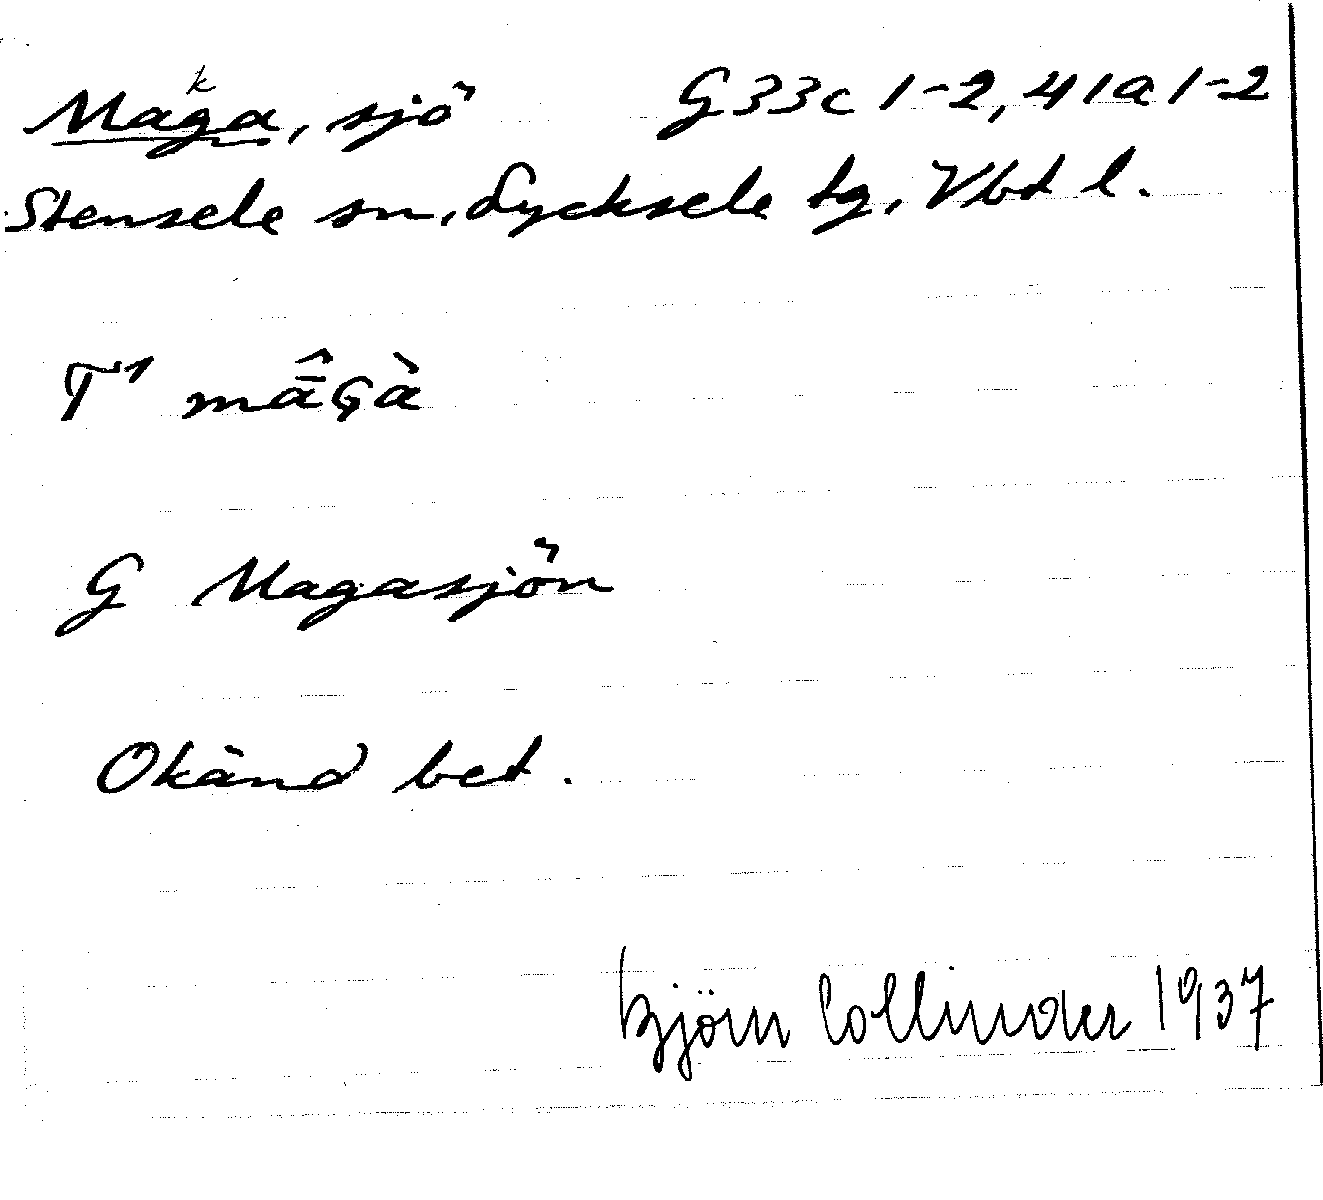 Maga, sjö G33c 1-2, 41a 1-2
k
Stensele sn, Lycksele tg, Vbt l.
T¹ mā̂Gà
G Magasjön
Okänd bet.
Björn Collinder 1937